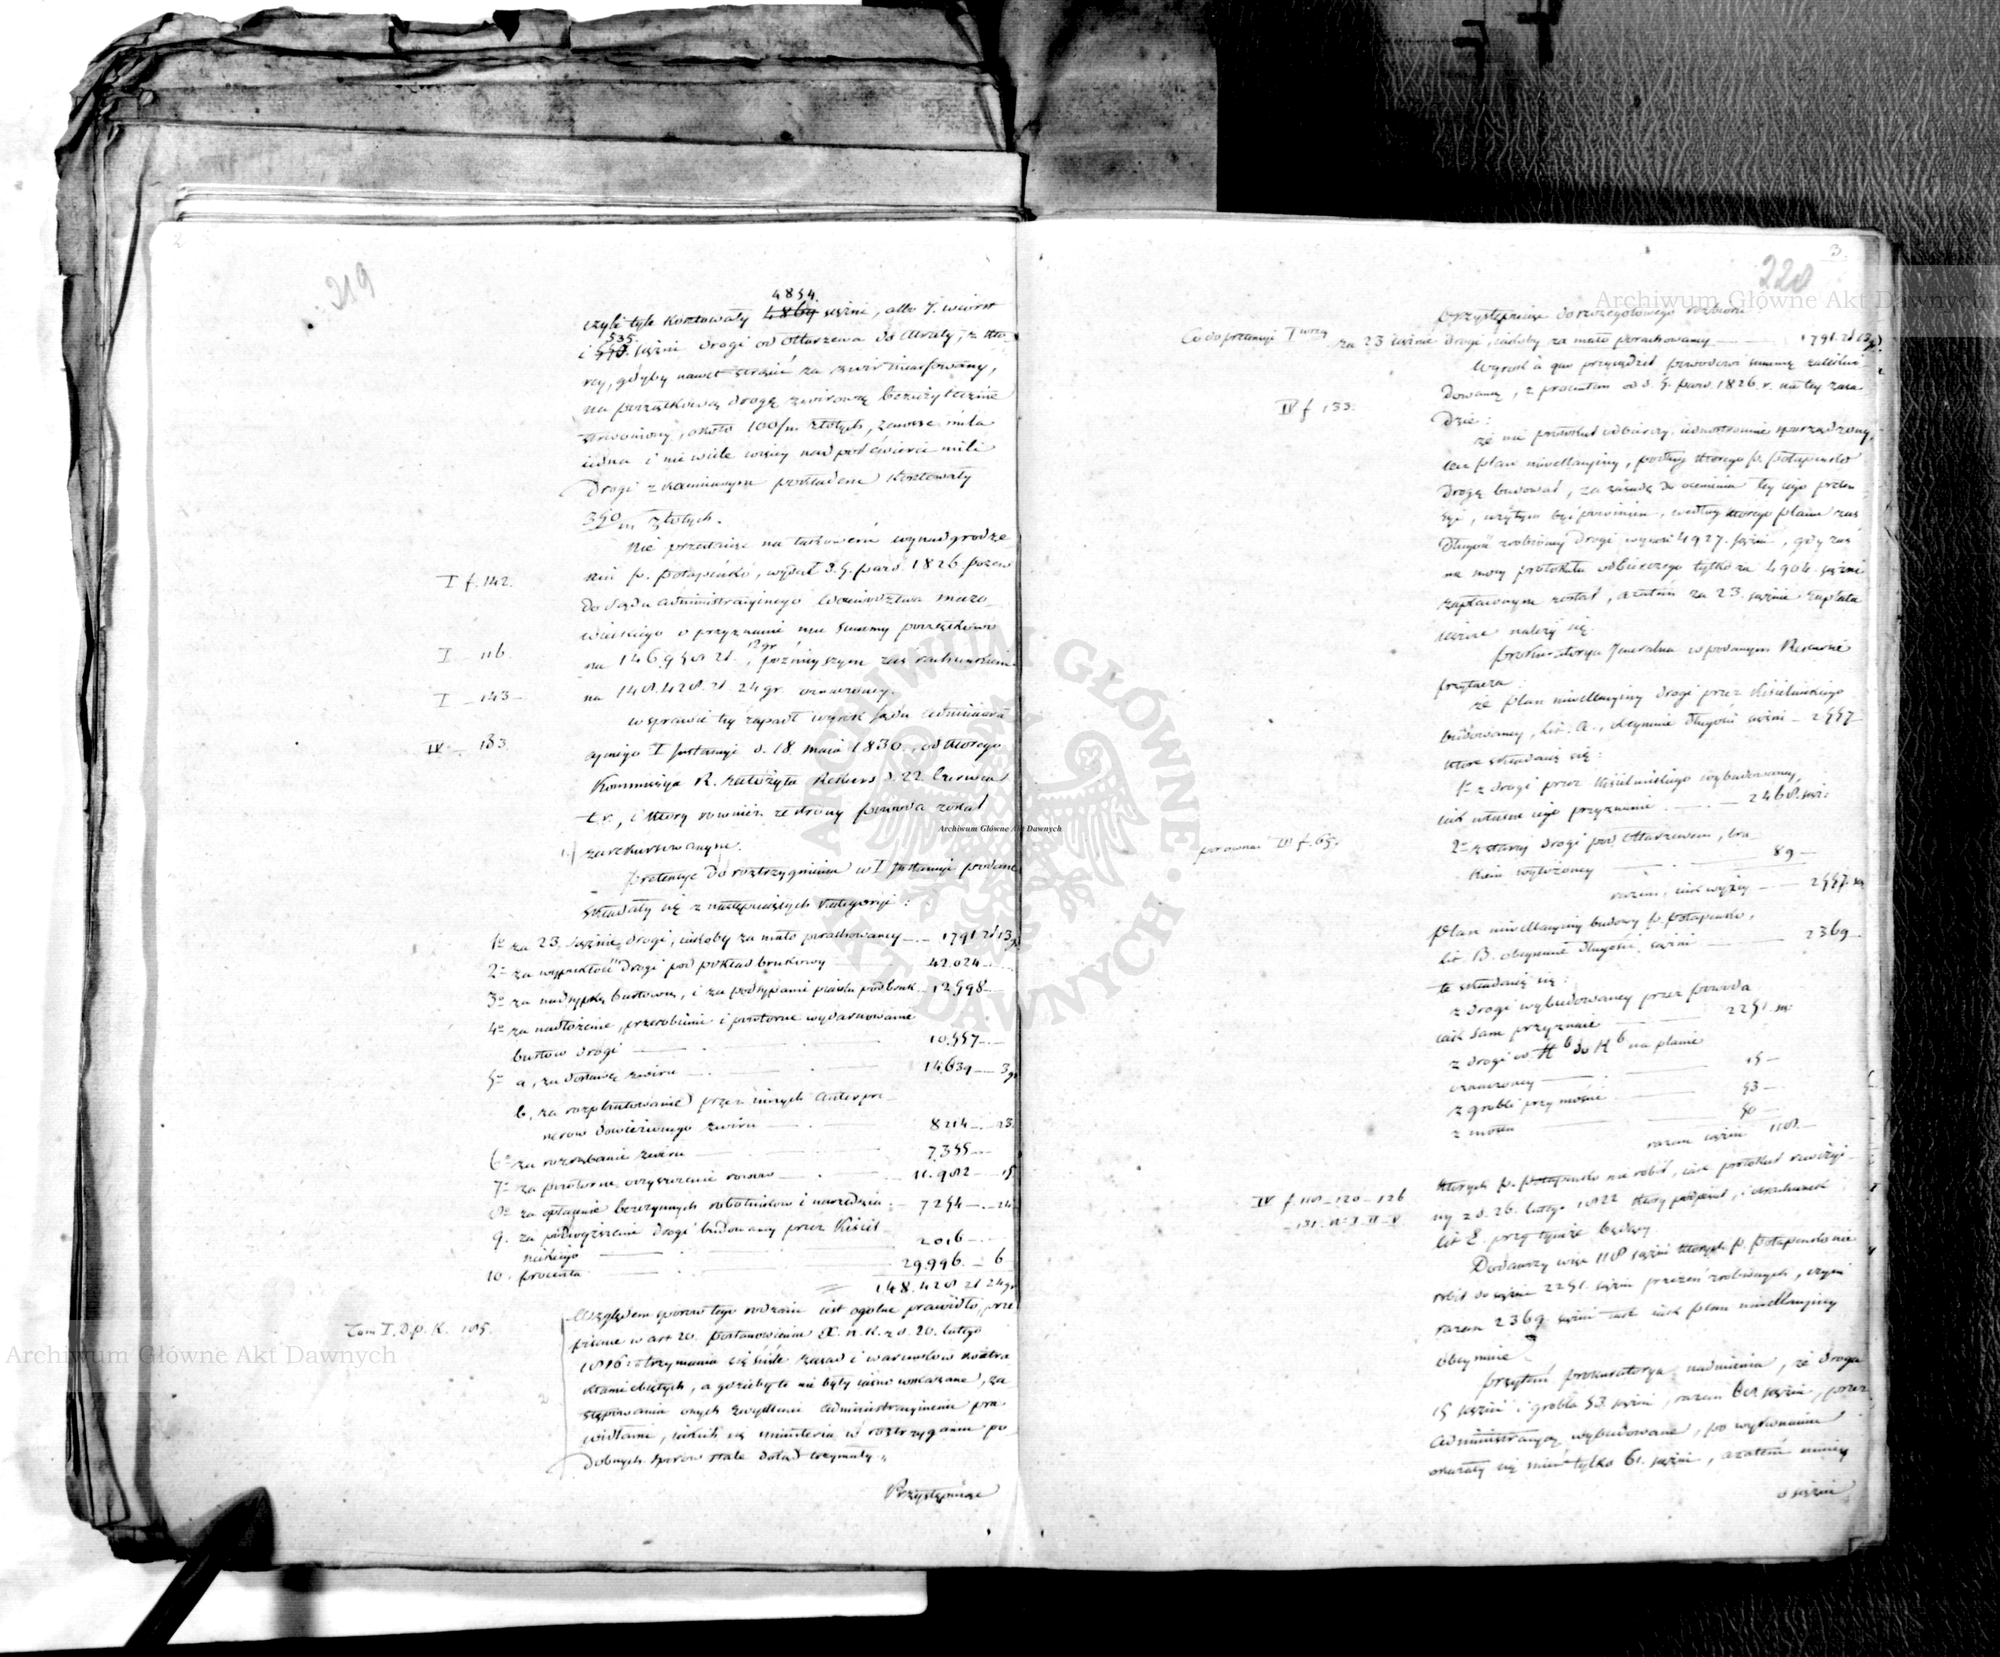 219
4854.
czyli tyle kosztowały 4869 sążni, albo 7. wiorst
535.
i 550. sążni drogi od Ołtarzewa do Utraty, z któ-
rey, gdyby nawet
na początkową drogę żwirową bezużytecznie
, około 100/m złotych, zawsze mila
iedna i nie wiele więcey nad pół ćwierci mili
drogi z kamiennym pokładem kosztowały
350/m złotych.
Nie przestaiąc na takowém wynadgrodze-
niu P. Potapeńko, wydał d. 5. Paźd. 1826 pozew
I f. 142.
do Sądu Administracyinego Województwa Mazo-
wieckiego o przyznanie mu Summy początkowo
I _ 116.
na 146950 zł. 12 gr, późnieyszym zaś rachunkiem
I _ 143 _
na 148.428. zł 24 gr. oznaczoney.
w sprawie tey zapadł wyrok Sądu Administra-
IV _ 133.
cyinego I Instancyi d. 18. maia 1830., od którego
Kommissya R. założyła Rekurs d. 22. Czerwca
t.r., i który również ze strony Powoda został
zarekursowanym.
Pretensye do rozstrzygnienia w I Instancyi podane
składały się z następuiących kategoryi:
1º za 23. sążnie drogi, iakoby za mało porachowaney _ . _ 1791 zł 13 g
2º za wypukłość drogi pod pokład brukowy 42.024 _
3º za nadsypkę burtową, i za podsypanie piasku pod bruk _ 12598 _
4º za nadłożenie, przerobienie i powtórne wydarniowanie
burtów drogi 10.557 _
5º a, za dostawę żwiru 14.639 _ 3 g
b, za rozplantowanie przez innych Enterpre-
nerów dowiezionego żwiru 8214 _ 23.
6º za rozrabianie żwiru 7.355 _
7º za powtórne oczyszczenie rowów 11.982 _ 15
8º za opłacenie bezczynnych robotników i narzędzia 7254 _ 24
9. za podwyższenie drogi budowaney przez Kisiel-
nickiego 2016 _
10. procenta 29.996. _ 6
148.428 zł 24 gr
Względem sporów tego rodzaiu iest ogólne prawidło, prze-
Tom I. D.p.K. 105.
pisane w art 20. Postanowienia X. N. K. z d. 20. lutego
1816: „trzymania się ściśle zasad i warunków kontra-
ktami obiętych, a gdzieby te nie były iasno wskazane, za-
stępowania onych zwykłemi administracyinemi pra-
widłami, iakich się ministeria w rozstrzyganiu po-
dobnych sporów stale dotąd trzymały„
Przystępuiąc
3.
220
Przystępuiąc do szczegółowego rozbioru
Co do pretensyi 1wszą za 23 sążnie drogi, iakoby za mało porachowaney _ 1791. zł 13 g
Wyrok à quo przysądził powodowi summę zalikwi-
dowaną, z procentem od d. 5. Paźd. 1826. r. na tey zasa-
IV f. 133.
dzie:
że nie protokuł odbiorczy, iednostronnie sporządzony,
lecz plan niwellacyiny, podług którego P. Potapeńko
drogę budował, za zasadę do ocenienia tey iego preten-
syi, użytym być powinien, według którego planu zaś
długość zrobioney drogi wynosi 4927. sążni, gdy zaś
na mocy protokułu odbiorczego tylko za 4904. sążni
zapłaconym został, a zatém za 23. sążnie zapłata
ieszcze należy się.
Prokuratorya Jeneralna w podanym Rekursie
przytacza:
że plan niwellacyiny drogi przez Kisielnickiego
budowaney, Lit. A., obeymuie długości sążni _ 2557
które składaią się:
1º z drogi przez Kisielnickiego wybudowaney,
iak własne iego przyznanie _ 2468. sąż:
2º z starey drogi pod Ołtarzewem, bru-
kiem wyłożoney 89 _
razem, iak wyżey _ 2557. są
porównać IV f. 65.
Plan niwellacyiny budowy P. Potapeńko,
Lit. B. obeymuie długości sążni 2369 _
te składaią się:
z drogi wybudowaney przez powoda
iak sam przyznaie 2251. są:
z drogi od H b do K b na planie
oznaczoney 15 _
z grobli przy moście 53 _
z mostu 50 _
razem sążni 118. _
IV f. 118 _ 120 _ 126
_ 131. N: I. II _ V
których P. Potapeńko nie robił, iak protokuł rewizyi-
ny z d. 26. lutego 1822 który podpisał, i obrachunek
lit E. przy tymże będący
Dodawszy więc 118 sążni których P. Potapeńko nie
robił do sążni 2251. sążni przezeń zrobionych, czyni
razem 2369. sążni tak iak plan niwellacyiny
obeymuie
Przytém Prokuratorya nadmienia, że droga
15 sążni i grobla 53. sążni, razem 68 sążni, przez
Administracyą wybudowane, po wyrównaniu
okazały się mieć tylko 61. sążni, a zatém mniey
o sążni
Archiwum Główne Akt Dawnych
Archiwum Główne Akt Dawnych
Archiwum Główne Akt Dawnych
ARCHIWUM GŁÓWNE AKT DAWNYCH